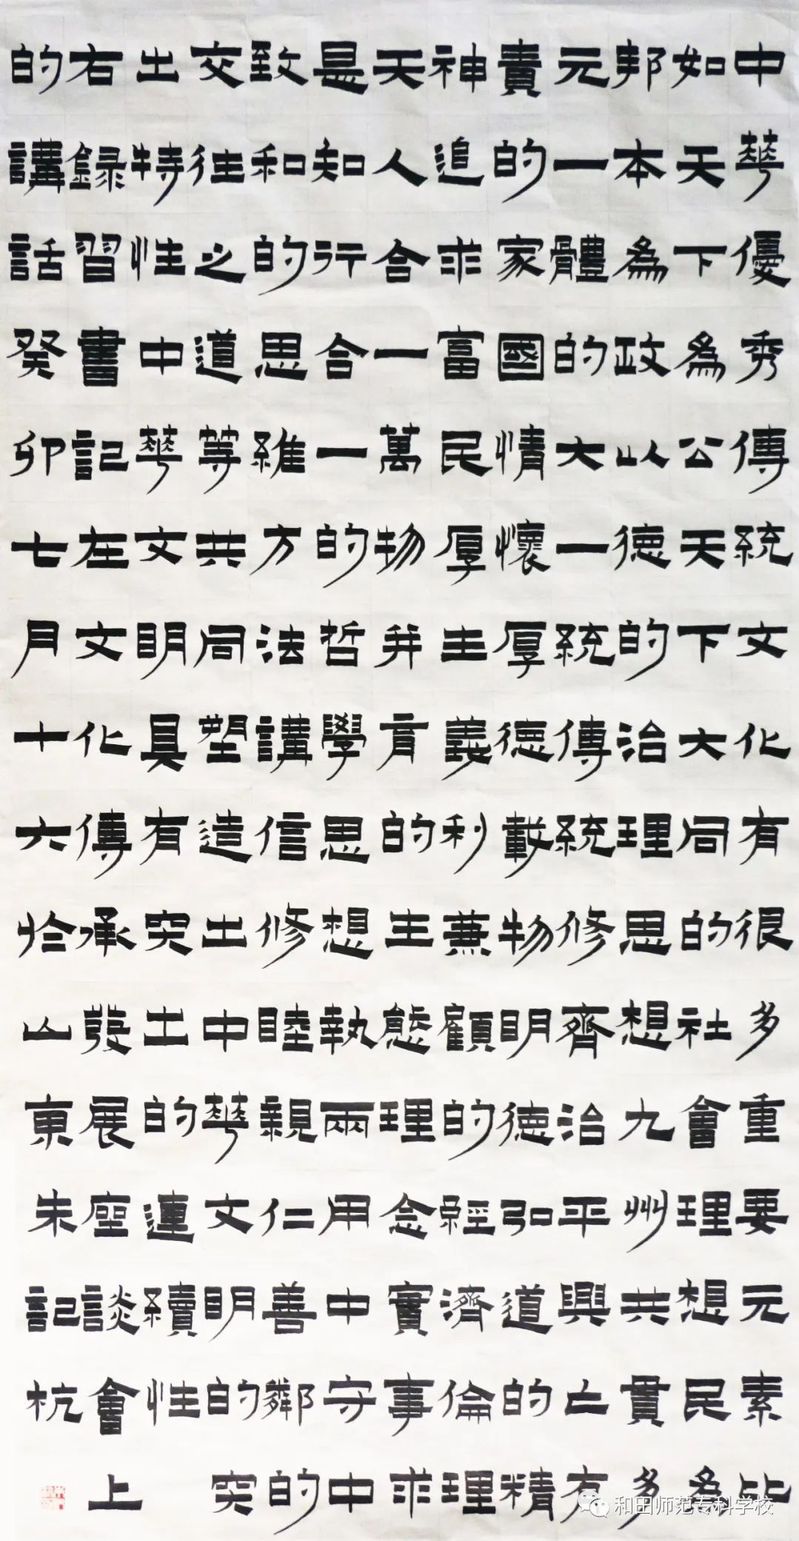 中華優秀傳統文化有很多重要元素比
如天下為公天下大同的社會理想民為
邦本為政以德的治理思想九州共貫多
元一體的大一統傳統修齊治平興亡有
責的家國情懷厚德載物明德弘道的精
神追求富民厚生義利兼顧的經濟倫理
天人合一萬物并育的生態理念實事求
是知行合一的哲學思想執兩用中守中
致和的思維方法講信修睦親仁善鄰的
交往之道等共同塑造出中華文明的突
出特性中華文明具有突出的連續性
右錄習書記在文化傳承發展座談會上
的講話癸卯七月十六於山東朱記杭
和田师范专科学校